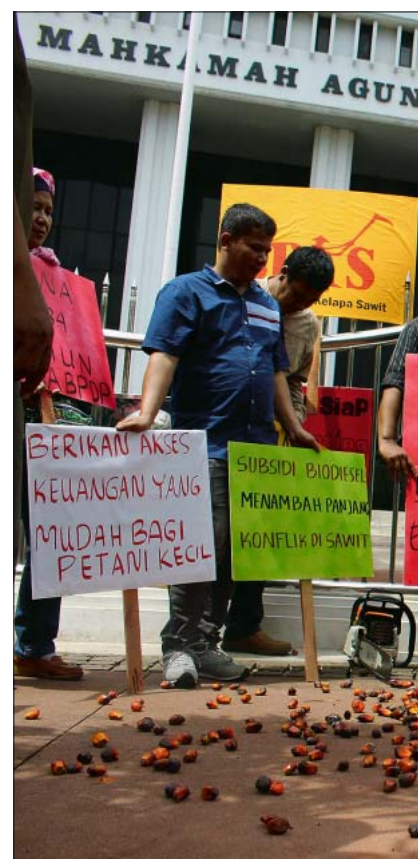 MAHKAMAH AGUN
KS
Kelapa Sawit
NA
UN
BPDP
SiaP
BERIKAN AKSES
KEUANGAN YANG
MUDAH BAGI
PETANI KECIL
SUBSIDI BIODIESEL
MENAMBAH PANJANG
KONFLIK DI SAWIT